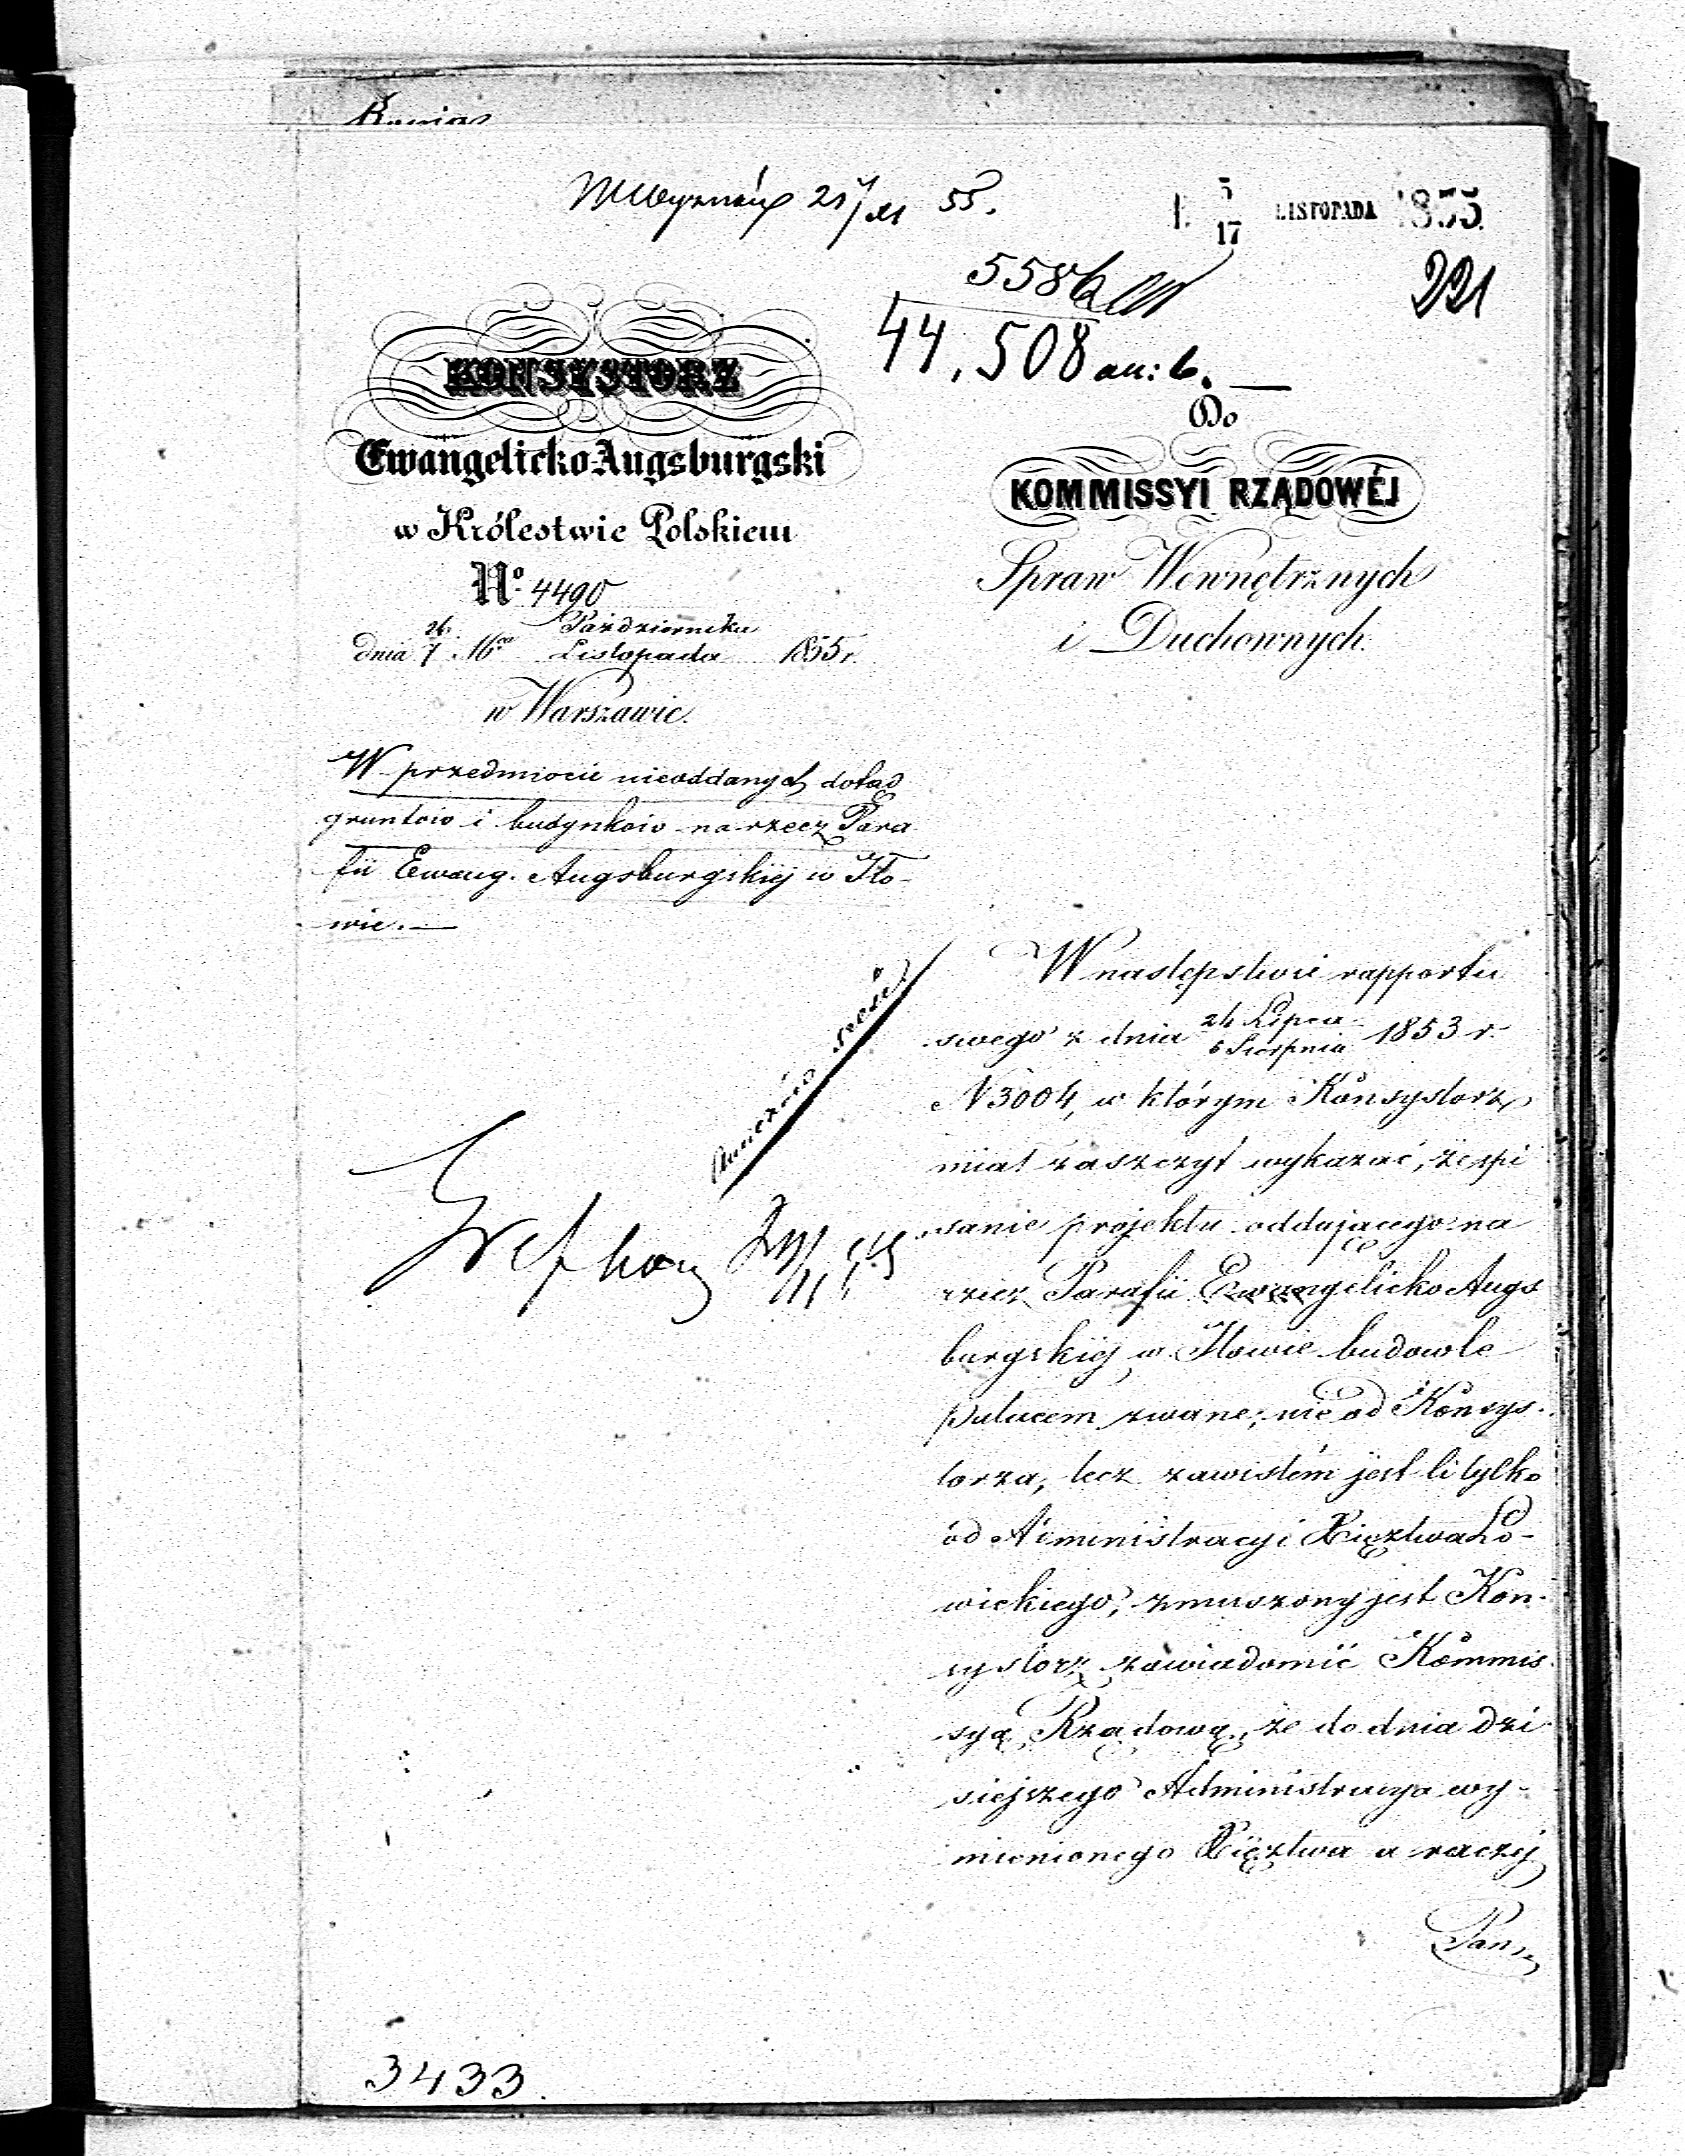 21/XI 55.
5/17 LISTOPADA 1855.
5586
221
44,508
KONSYSTORZ
Ewangelicko Augsburgski
w Królestwie Polskiem
No. 4490
26 Października
dnia 7 Listopada 1855 r.
w Warszawie.
Do
KOMMISSYI RZĄDOWÉJ
Spraw Wewnętrznych
i Duchownych.
W przedmiocie nieoddanych dotąd
gruntów i budynków na rzecz Para
fii Ewang. Augsburgskiej w Iło-
wie. —
W następstwie rapportu
swego z dnia 24 Lipca / 5 Sierpnia 1853 r.
N 3004, w którym Konsystorz
miał zaszczyt wykazać, że spi
sanie projektu oddającego na
rzecz Parafii Ewangelicko Augs
burgskiej w Iłowie budowle
pałacem zwane, nie od Konsys-
torza, lecz zawisłém jest li tylko
od Administracyi Xięztwa Ło-
wickiego, zmuszony jest Kon-
systorz zawiadomić Kommis
syą Rządową, że do dnia dzi
siejszego Administracya wy-
mienionego Xięztwa a raczej
Pan
3433.